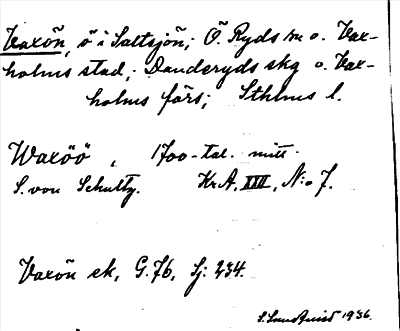 Vaxön, ö i Saltsjön; Ö. Ryds sn o. Vax-
holms stad; Danderyds skg o. Vax-
holms förs; Sthlms l.
Waxöö, 1700-tal. mitt.
S. von Schultz. Kr.A. XXII, N:o 7.
Vaxön ek, G.76, Sj: 234.
S. Sundqvist 1936.